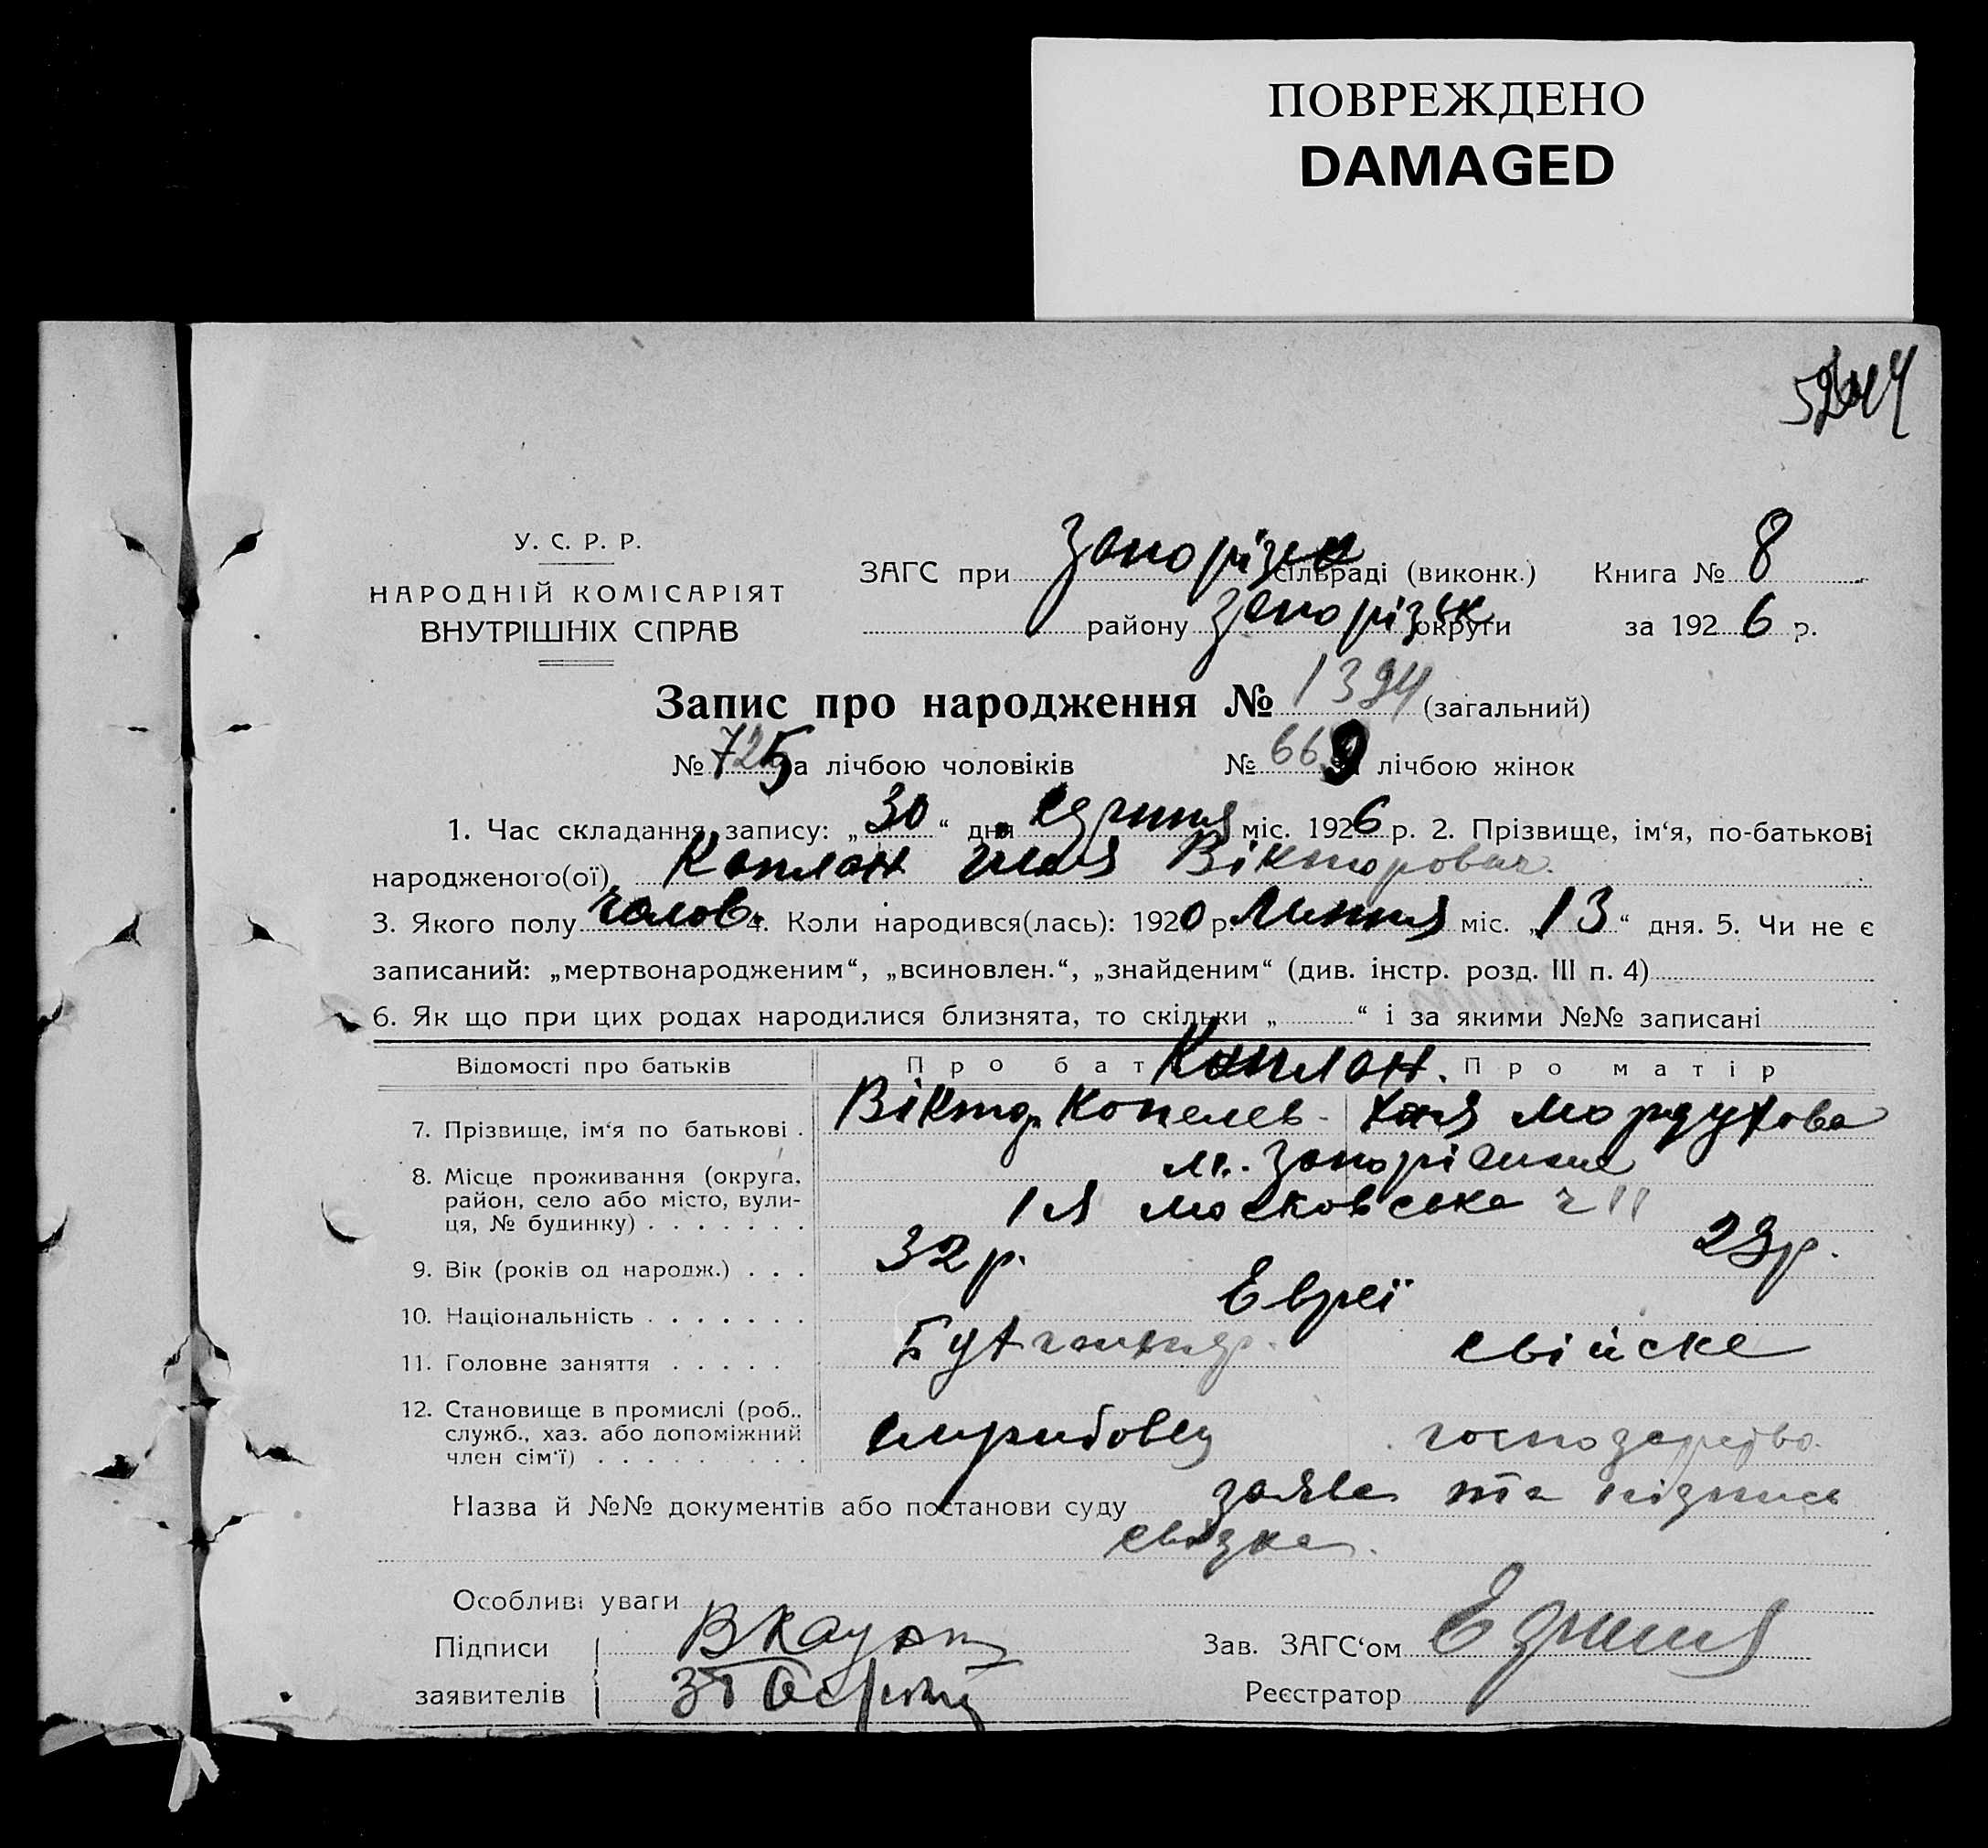 ПОВРЕЖДЕНО
DAMAGED
У. С. Р. Р.
НАРОДНІЙ КОМІСАРІЯТ
ВНУТРІШНІХ СПРАВ
ЗАГС при сільраді (виконк.) Книга № 8
району Запорізьк округи за 1926 р.
Запис про народження № 1394 (загальний)
№ 725 за лічбою чоловіків № 669 за лічбою жінок
1. Час складання запису: „30“ дня серпня міс. 1926 р. 2. Прізвище, ім‘я, по-батькові
народженого(ої) Каплан Ілля Вікторович.
3. Якого полу чолов. 4. Коли народився(лась): 1920 р. Липня міс. „13“ дня. 5. Чи не є
записаний: „мертвонародженим“, „всиновлен.“, „знайденим“ (див. інстр. розд. III п. 4)
6. Як що при цих родах народилися близнята, то скільки „ “ і за якими №№ записані
Відомості про батьків Про бат Каплан. Про матір
7. Прізвище, ім‘я по батькові . Віктор Копелев. Хая Мордухова
8. Місце проживання (округа, м. Запоріжжя
район, село або місто, вули-
ця, № будинку) . . . . . . . 1ая Московська ч 11
9. Вік (років од народж.) . . . 32 р. 23 р.
10. Національність . . . . . . . Евреї
11. Головне заняття . . . . . Бухгалтер. свійске
12. Становище в промислі (роб.,
служб., хаз. або допоміжний господарство.
член сім‘ї) . . . . . . . . .
Назва й №№ документів або постанови суду заява та підпись
свідка.
Особливі уваги
Підписи Зав. ЗАГС‘ом
заявителів Реєстратор